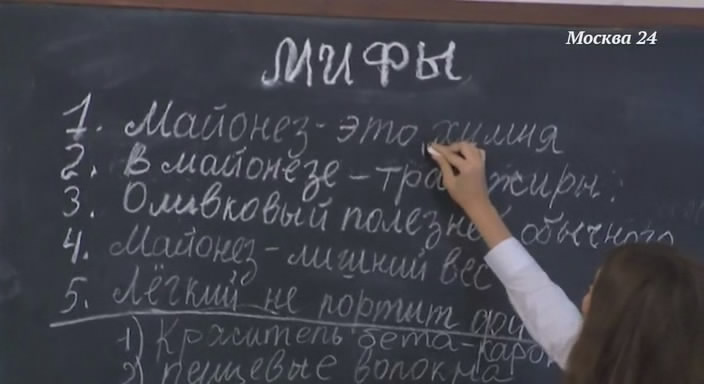 Москва 24
МИФЫ
1. Майонез - это химия
2. В майонезе - тра жиры.
3. Оливковый полезней обычного
4. Майонез - лишний вес
5. Лёгкий не портит
1) Краситель бета-каро
2) Пищевые волокна